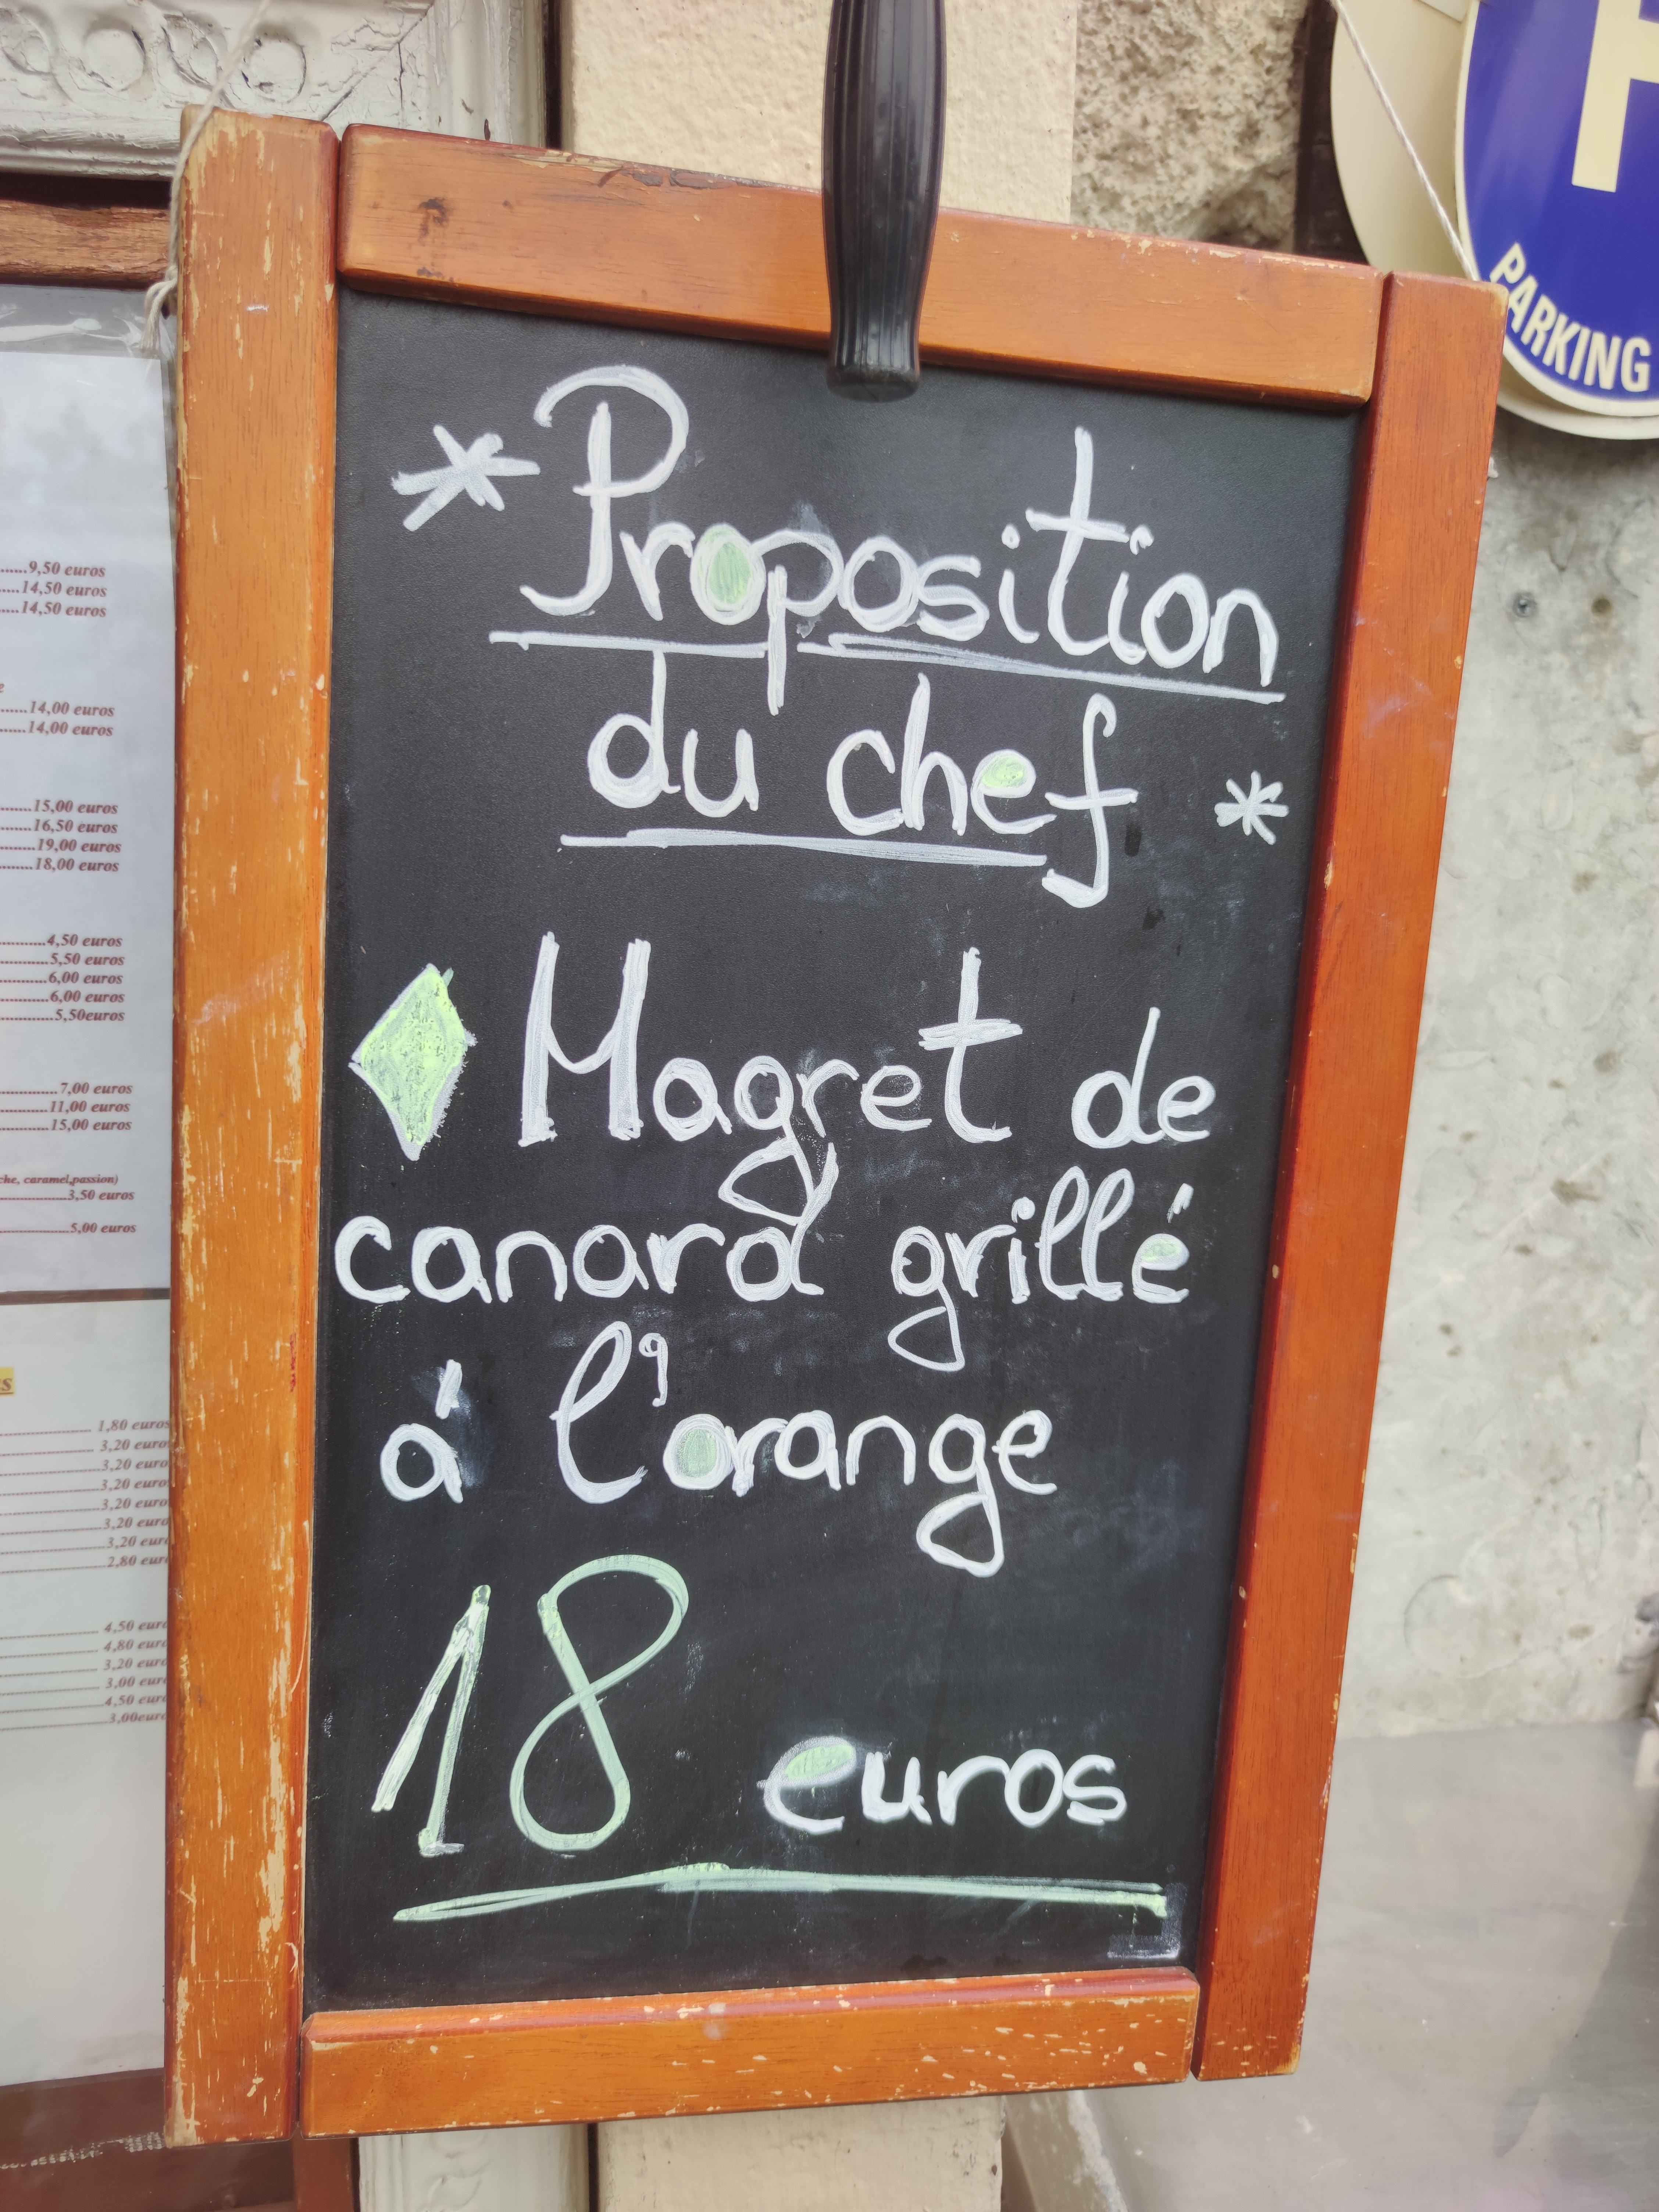 *Proposition
du chef *
Magret de
canard grillé
á l'orange
18 euros
PARKING
......9,50 euros
.....14,50 euros
.....14,50 euros
......14,00 euros
......14,00 euros
......15,00 euros
......16,50 euros
.......19,00 euros
.......18,00 euros
..........4,50 euros
...........5,50 euros
..........6,00 euros
...........6,00 euros
............5,50euros
.............7,00 euros
...........11,00 euros
...........15,00 euros
che, caramel,passion)
..............3,50 euros
..............5,00 euros
1,80 euros
3,20 euro
3,20 euro
3,20 euro
3,20 euro
3,20 euro
3,20 euro
2,80 euro
4,50 euro
4,80 euro
3,20 euro
3,00 euro
4,50 euro
3,00euro